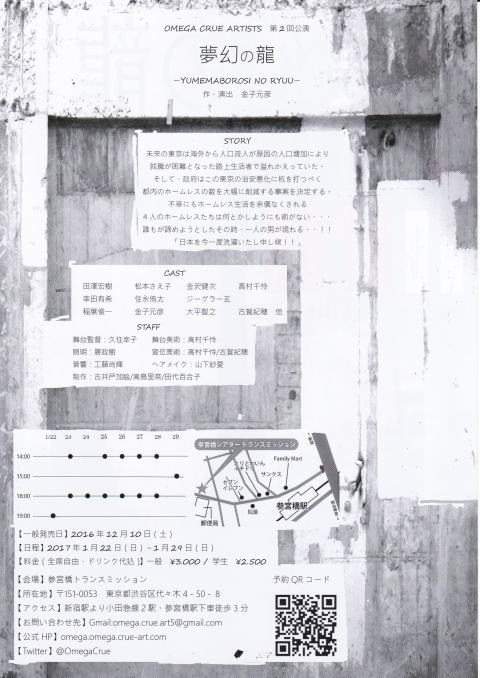 OMEGA CRUE ARTISTS 第2回公演
夢幻の龍
−YUMEMABOROSI NO RYUU−
作・演出 金子元彦
STORY
未来の東京は海外から人口流入が原因の人口増加により
就職が困難となった路上生活者で溢れかえっていた・
そして・政府はこの東京の治安悪化に杭を打つべく
都内のホームレスの数を大幅に削減する事業を決定する・
不幸にもホームレス生活を余儀なくされる
4人のホームレスたちは何とかしようにも術がない・・・
誰もが諦めようとしたその時・一人の男が現れる・・!!
「日本を今一度洗濯いたし申し候!!」
CAST
田澤宏樹 松本さえ子 金沢健次 高村千怜
幸田有希 住永侑太 ジーグラー玄
稲葉俊一 金子元彦 大平智之 古賀紀穂 他
STAFF
舞台監督：久住幸子 舞台美術：高村千怜
照明：藤政樹 宣伝美術：高村千怜/古賀紀穂
音響：工藤尚輝 ヘアメイク：山下紗愛
制作：古井戸加絵/高島里奈/田代百合子
1/22 23 24 25 26 27 28 29
14:00
15:00
18:00
19:00
参宮橋シアター トランスミッション
Family Mart
サンクス
セブンイレブン
松屋
参宮橋駅
郵便局
【一般発売日】2016年12月10日(土)
【日程】2017年1月22日(日)~1月29日(日)
【料金(全席自由・ドリンク代込)】一般 ¥3.000/ 学生 ¥2.500
【会場】参宮橋トランスミッション
【所在地】〒151-0053 東京都渋谷区代々木4-50-8
【アクセス】新宿駅より小田急線2駅・参宮橋駅下車徒歩3分
【お問い合わせ先】Gmail:omega.crue.art5@gmail.com
【公式HP】omega.omega.crue-art.com
【Twitter】@OmegaCrue
予約QRコード